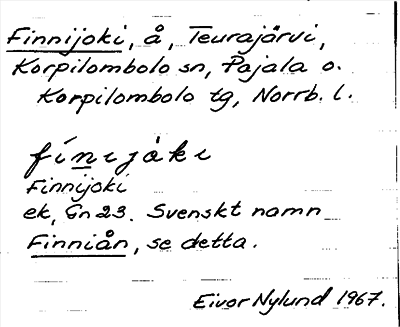 Finnijoki, å, Teurajärvi,
Korpilombolo sn, Pajala o.
Korpilombolo tg, Norrb. l.
fínijȧki
Finnijoki
ek, Gn 23. Svenskt namn
Finniån, se detta.
Eivor Nylund 1967.